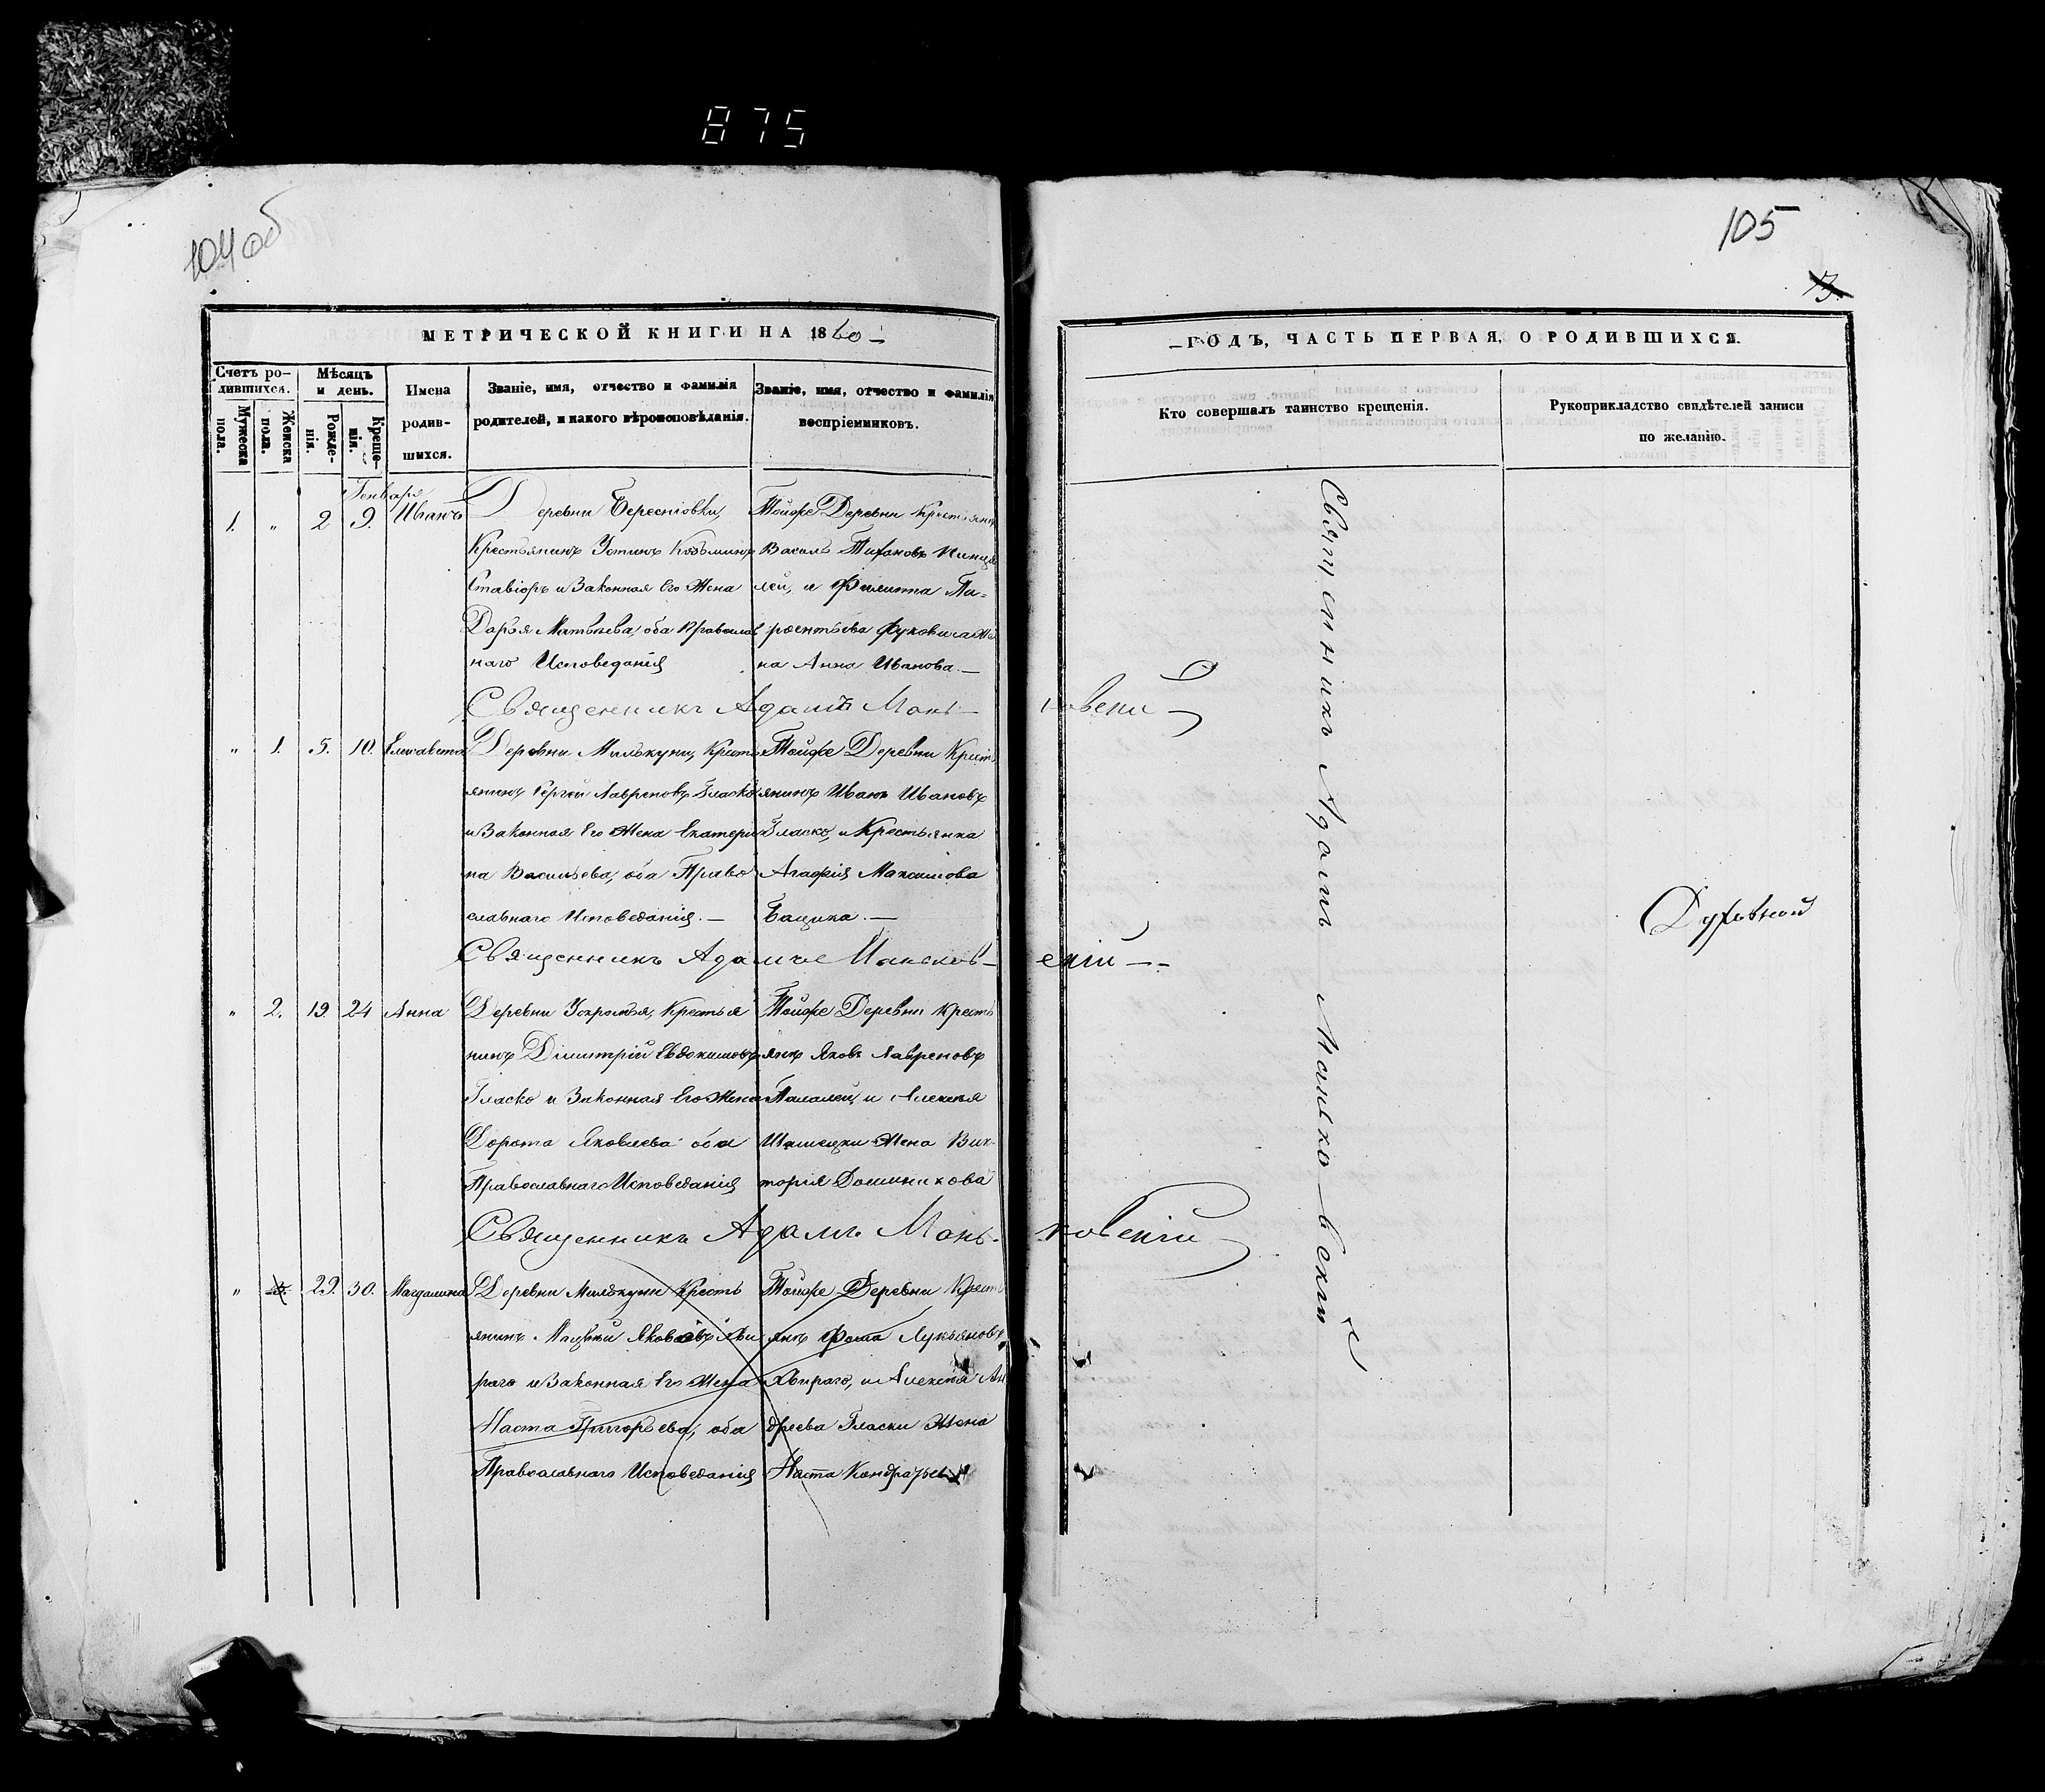 875
104 об
105
73.
МЕТРИЧЕСКОЙ КНИГИ НА 1860
ГОДЪ, ЧАСТЬ ПЕРВАЯ, О РОДИВШИХСЯ.
Счетъ ро-
дившихся.
Мужеска
пола.
Женска
пола.
Мѣсяцъ
и день.
Рожде-
нія.
Креще-
нія.
Имена
родив-
шихся.
Званіе, имя, отчество и фамилія
родителей, и какого вѣроисповѣданія.
Званіе, имя, отчество и фамилія
воспріемниковъ.
Кто совершалъ таинство крещенія.
Рукоприкладство свидѣтелей записи
по желанію.
Генваря
1. " 2 9. Иванъ
Деревни Бересніовки,
Крестьянинъ Устинъ Козьминъ
Ставіоръ и Законная Его Жена
Дарья Матвѣева, оба Православ
наго Исповеданія
Тойже Деревни Крестьянинъ
Василь Тихоновъ
лей, и Филиппа Ла-
рентьева Фуковича Же
на Анна Иванова. —
Священникъ Адамъ Мань-
ковскій
" 1. 5. 10. Елисавета
Деревни Милькуны, Кресть
янинъ Сергей Лавреновъ Гласко
и Законная Его Жена Екатери
на Васильева, оба Право
славнаго Исповеданія. —
Тойже Деревни Кресть
янинъ Иванъ Ивановъ
Гласко, и Крестьянка
Агафія Максимова
Бацука. —
Священникъ Адамъ Маньков-
скій —
" 2. 19. 24 Анна
Деревни Укропья, Крестья
нинъ Димитрій Евдокимовъ
Гласко и Законная Его Жена
Дорота Яковлева оба
Православнаго Исповеданія
Тойже Деревни Кресть
янъ Яковъ Лавреновъ
Палалей, и Алексея
Шашецки Жена Вик-
торія Доминикова
Священникъ Адамъ Мань-
ковскій
" 3. 29. 30. Магдалина
Деревни Милькуны Кресть
янинъ Яковъ Хви
раго и Законная Его Жена
Наста Григорьева, оба
Православнаго Исповеданія
Тойже Деревни Кресть
янъ Фома Лукьяновъ
Хвираго, и Алексея Ан
дреева Гласки Жена
Наста Кондратьева
Священникъ Адамъ Маньковскій
Духовной